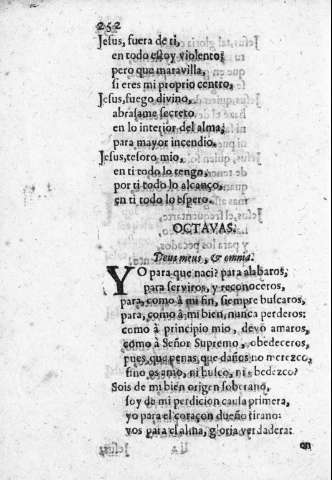 252
Jesus, fuera de ti,
en todo estoy violento;
pero que maravilla,
si eres mi proprio centro,
Jesus, fuego divino,
abrasame secreto
en lo interior del alma,
para mayor incendio.
Jesus, tesoro mio,
en ti todo lo tengo,
por ti todo lo alcanço,
en ti todo lo espero.
OCTAVAS.
Deus meus, & omnia.
YO para que naci? para alabaros,
para serviros, y reconoceros,
para, como à mi fin, siempre buscaros,
para, como à mi bien, nunca perderos:
como à principio mio, devo amaros,
como à Señor Supremo, obedeceros,
pues que penas, que daños no merezco,
sino os amo, ni busco, ni obedezco?
Sois de mi bien origen soberano,
soy de mi perdicion causa primera,
yo para el coraçon dueño tirano:
vos para el alma, gloria verdadera:
en